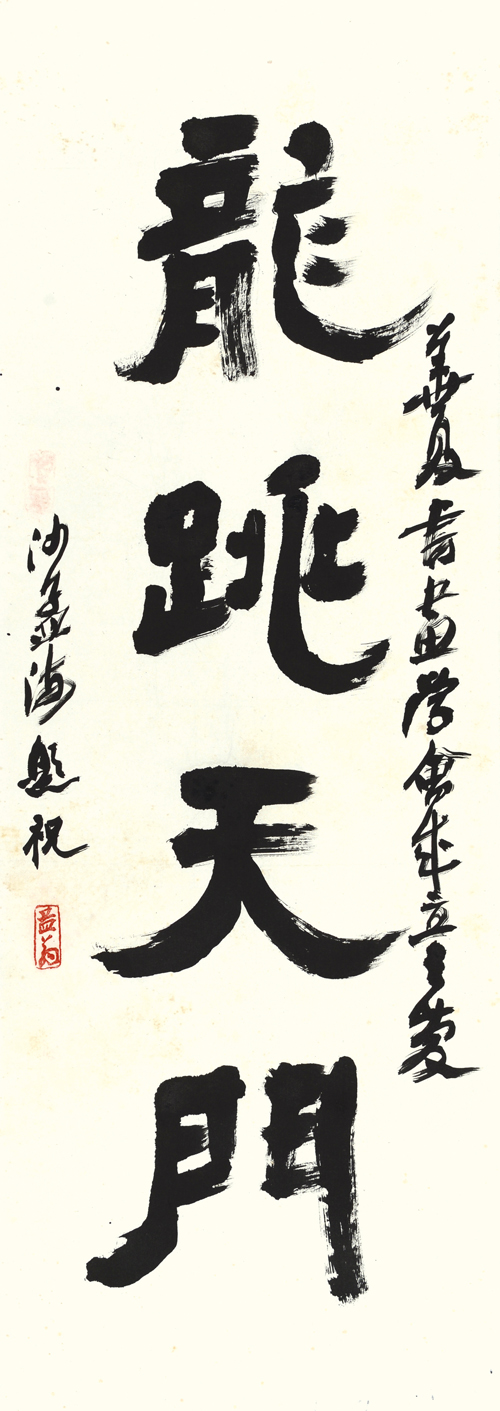 華夏書畫学會成立之慶
龍跳天門
沙孟海題祝